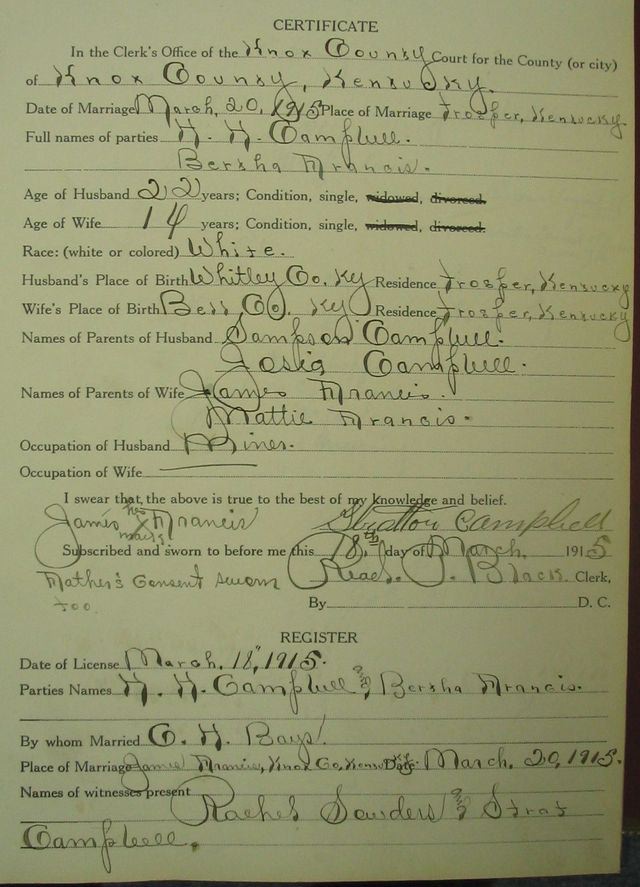 CERTIFICATE
In the Clerk's Office of the Knox County Court for the County (or city)
of Knox County, Kentucky.
Date of Marriage March, 20, 1915 Place of Marriage Trosper, Kentucky.
Full names of parties H. H. Campbell.
Bertha Francis.
Age of Husband 22 years; Condition, single, widowed, divorced.
Age of Wife 14 years; Condition, single, widowed, divorced.
Race: (white or colored) White.
Husband's Place of Birth Whitley Co. Ky Residence Trosper, Kentucky
Wife's Place of Birth Bell Co. Ky Residence Trosper, Kentucky
Names of Parents of Husband Sampson Campbell.
Josie Campbell.
Names of Parents of Wife James Francis.
Mattie Francis.
Occupation of Husband Miner.
Occupation of Wife
I swear that the above is true to the best of my knowledge and belief.
James his X mark Francis Stratton Campbell
Subscribed and sworn to before me this 18th day of March, 1915
Read P. Black Clerk,
Father's Consent sworn
too. By D. C.
REGISTER
Date of License March. 18", 1915.
Parties Names H. H. Campbell & Bertha Francis.
By whom Married C. H. Bays!
Place of Marriage James Francis, Knox Co, Kentucky. Date March. 20, 1915.
Names of witnesses present Rachel Sauders & Strat
Campbell.